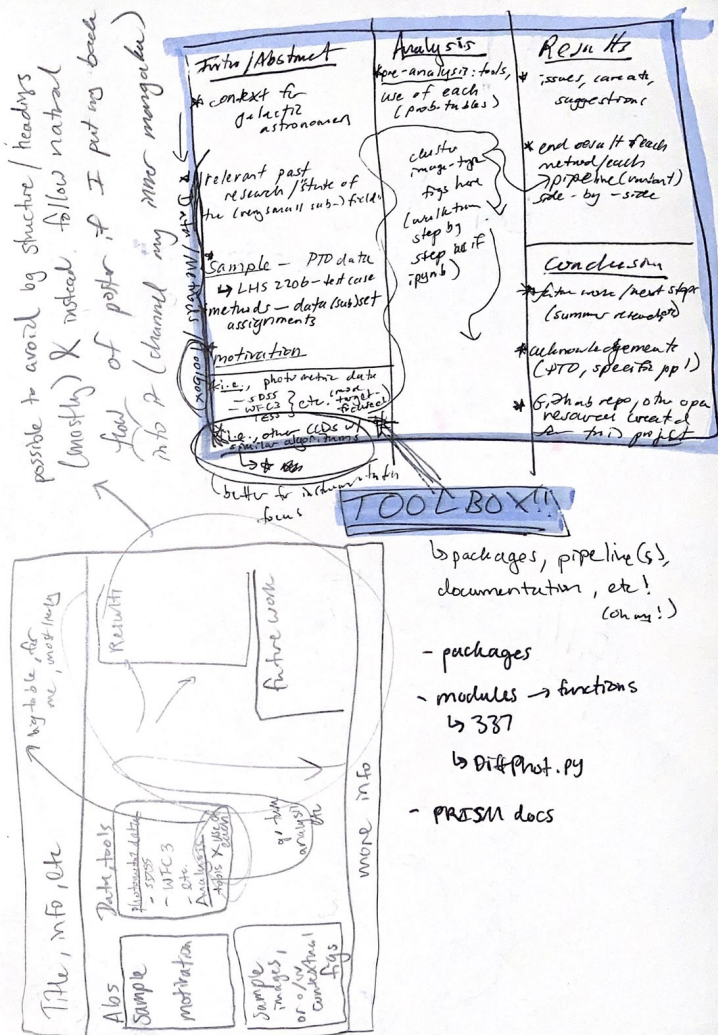 possible to avoid bg structure/headings
(mostly) & instead follow natural
flow of poster if I put my back
into it (channel my inner mangaka)
Intro/Abstract
* context for
galactic
astronomers
relevant past
research/state of
the (very small sub-) field
* sample - PTO data
↳ LHS 2206 - test case
methods - data (sub)set
assignments
* motivation
* i.e., photometric data
- SDSS
- WFC3
- TESS
etc. (more
target-
focused)
* i.e., other CCDs w/
similar algorithms
↳ *
(better for instrumentation
focus
* Data/Methods/Toolbox
Analysis
* pre-analysis: tools,
use of each
(prob. tables)
cluster
image-type
figs here
(walk thru
step by
step as if
ipynb)
Results
* issues, caveats,
suggestions
* end result of each
method/each
pipeline (variant)
side-by-side
Conclusion
* future work/next steps
(summer research)
* acknowledgements
(PTO, specific ppl)
* Github repo, other open
resources created
for this project
TOOLBOX!!
↳ packages, pipeline(s),
documentation, etc!
(oh my!)
- packages
- modules → functions
↳ 337
↳ DiffPhot.py
- PRISM docs
Title, info, etc
↗ big table, for
me, most likely
Abs
Sample
motivation
Sample
images,
or o/w
contextual
figs
Data, tools
photometric data
- SDSS
- WFC3
- etc.
Analysis
tools & use of
each
or turn
analysis
etc
Results
future work
more info